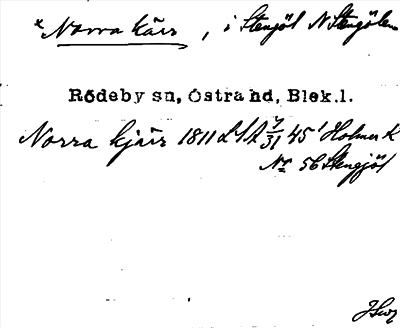 *Norra kärr, i Stengöl N Stengölen
Rödeby sn, Östra hd, Blek.l.
Norra kjärr 1811 LSA 7/31 45' Holmer K
Nr 56 Stengjöl